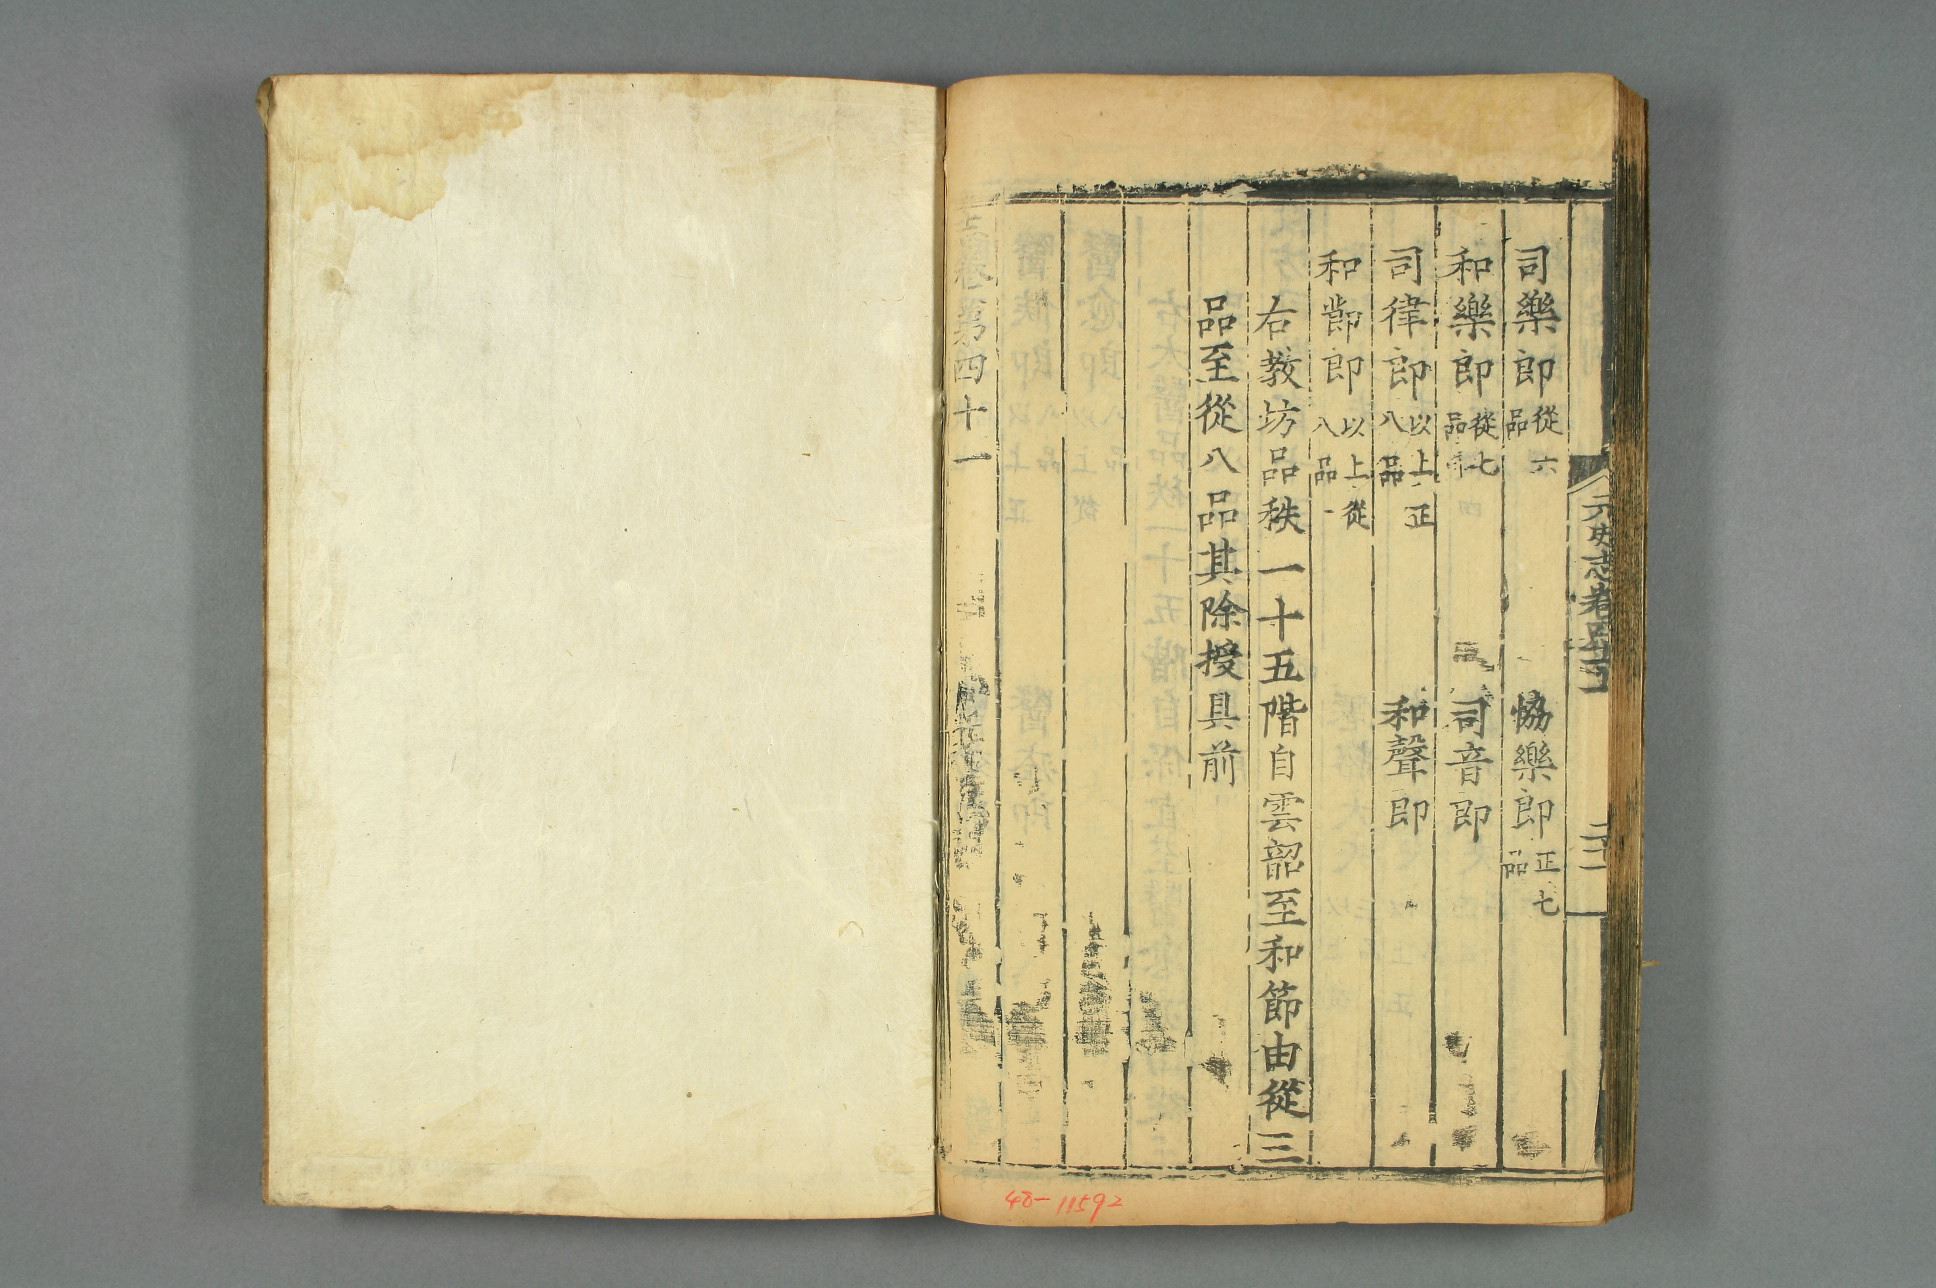 元史志卷四十一
二十一
司樂郎從六品 協樂郎正七品
和樂郎從七品 司音郎
司律郎以上正八品 和聲郎
和節郎以上從八品
右教坊品秩一十五階自雲韶至和節由從三
品至從八品其除授具前
志卷第四十一
48-11592